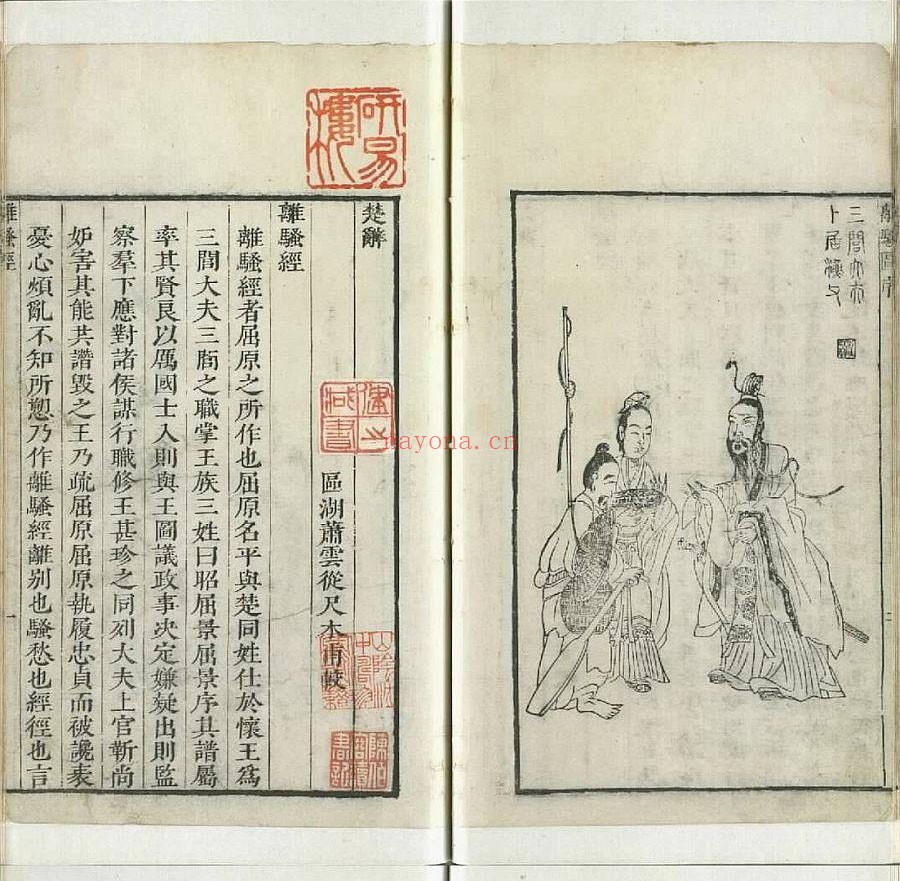 離騷圖序
三閭大夫
卜居漁父
研易樓
楚辭
藏書
nayona.cn
區湖蕭雲從尺木甫較
離騷經
離騷經者屈原之所作也屈原名平與楚同姓仕於懷王爲
三閭大夫三閭之職掌王族三姓曰昭屈景屈景序其譜屬
率其賢良以厲國士入則與王圖議政事决定嫌疑出則監
察羣下應對諸侯謀行職修王甚珍之同列大夫上官靳尚
妒害其能共譖毀之王乃疏屈原屈原執履忠貞而被讒衺
憂心煩亂不知所愬乃作離騷經離别也騷愁也經徑也言
離騷經
一